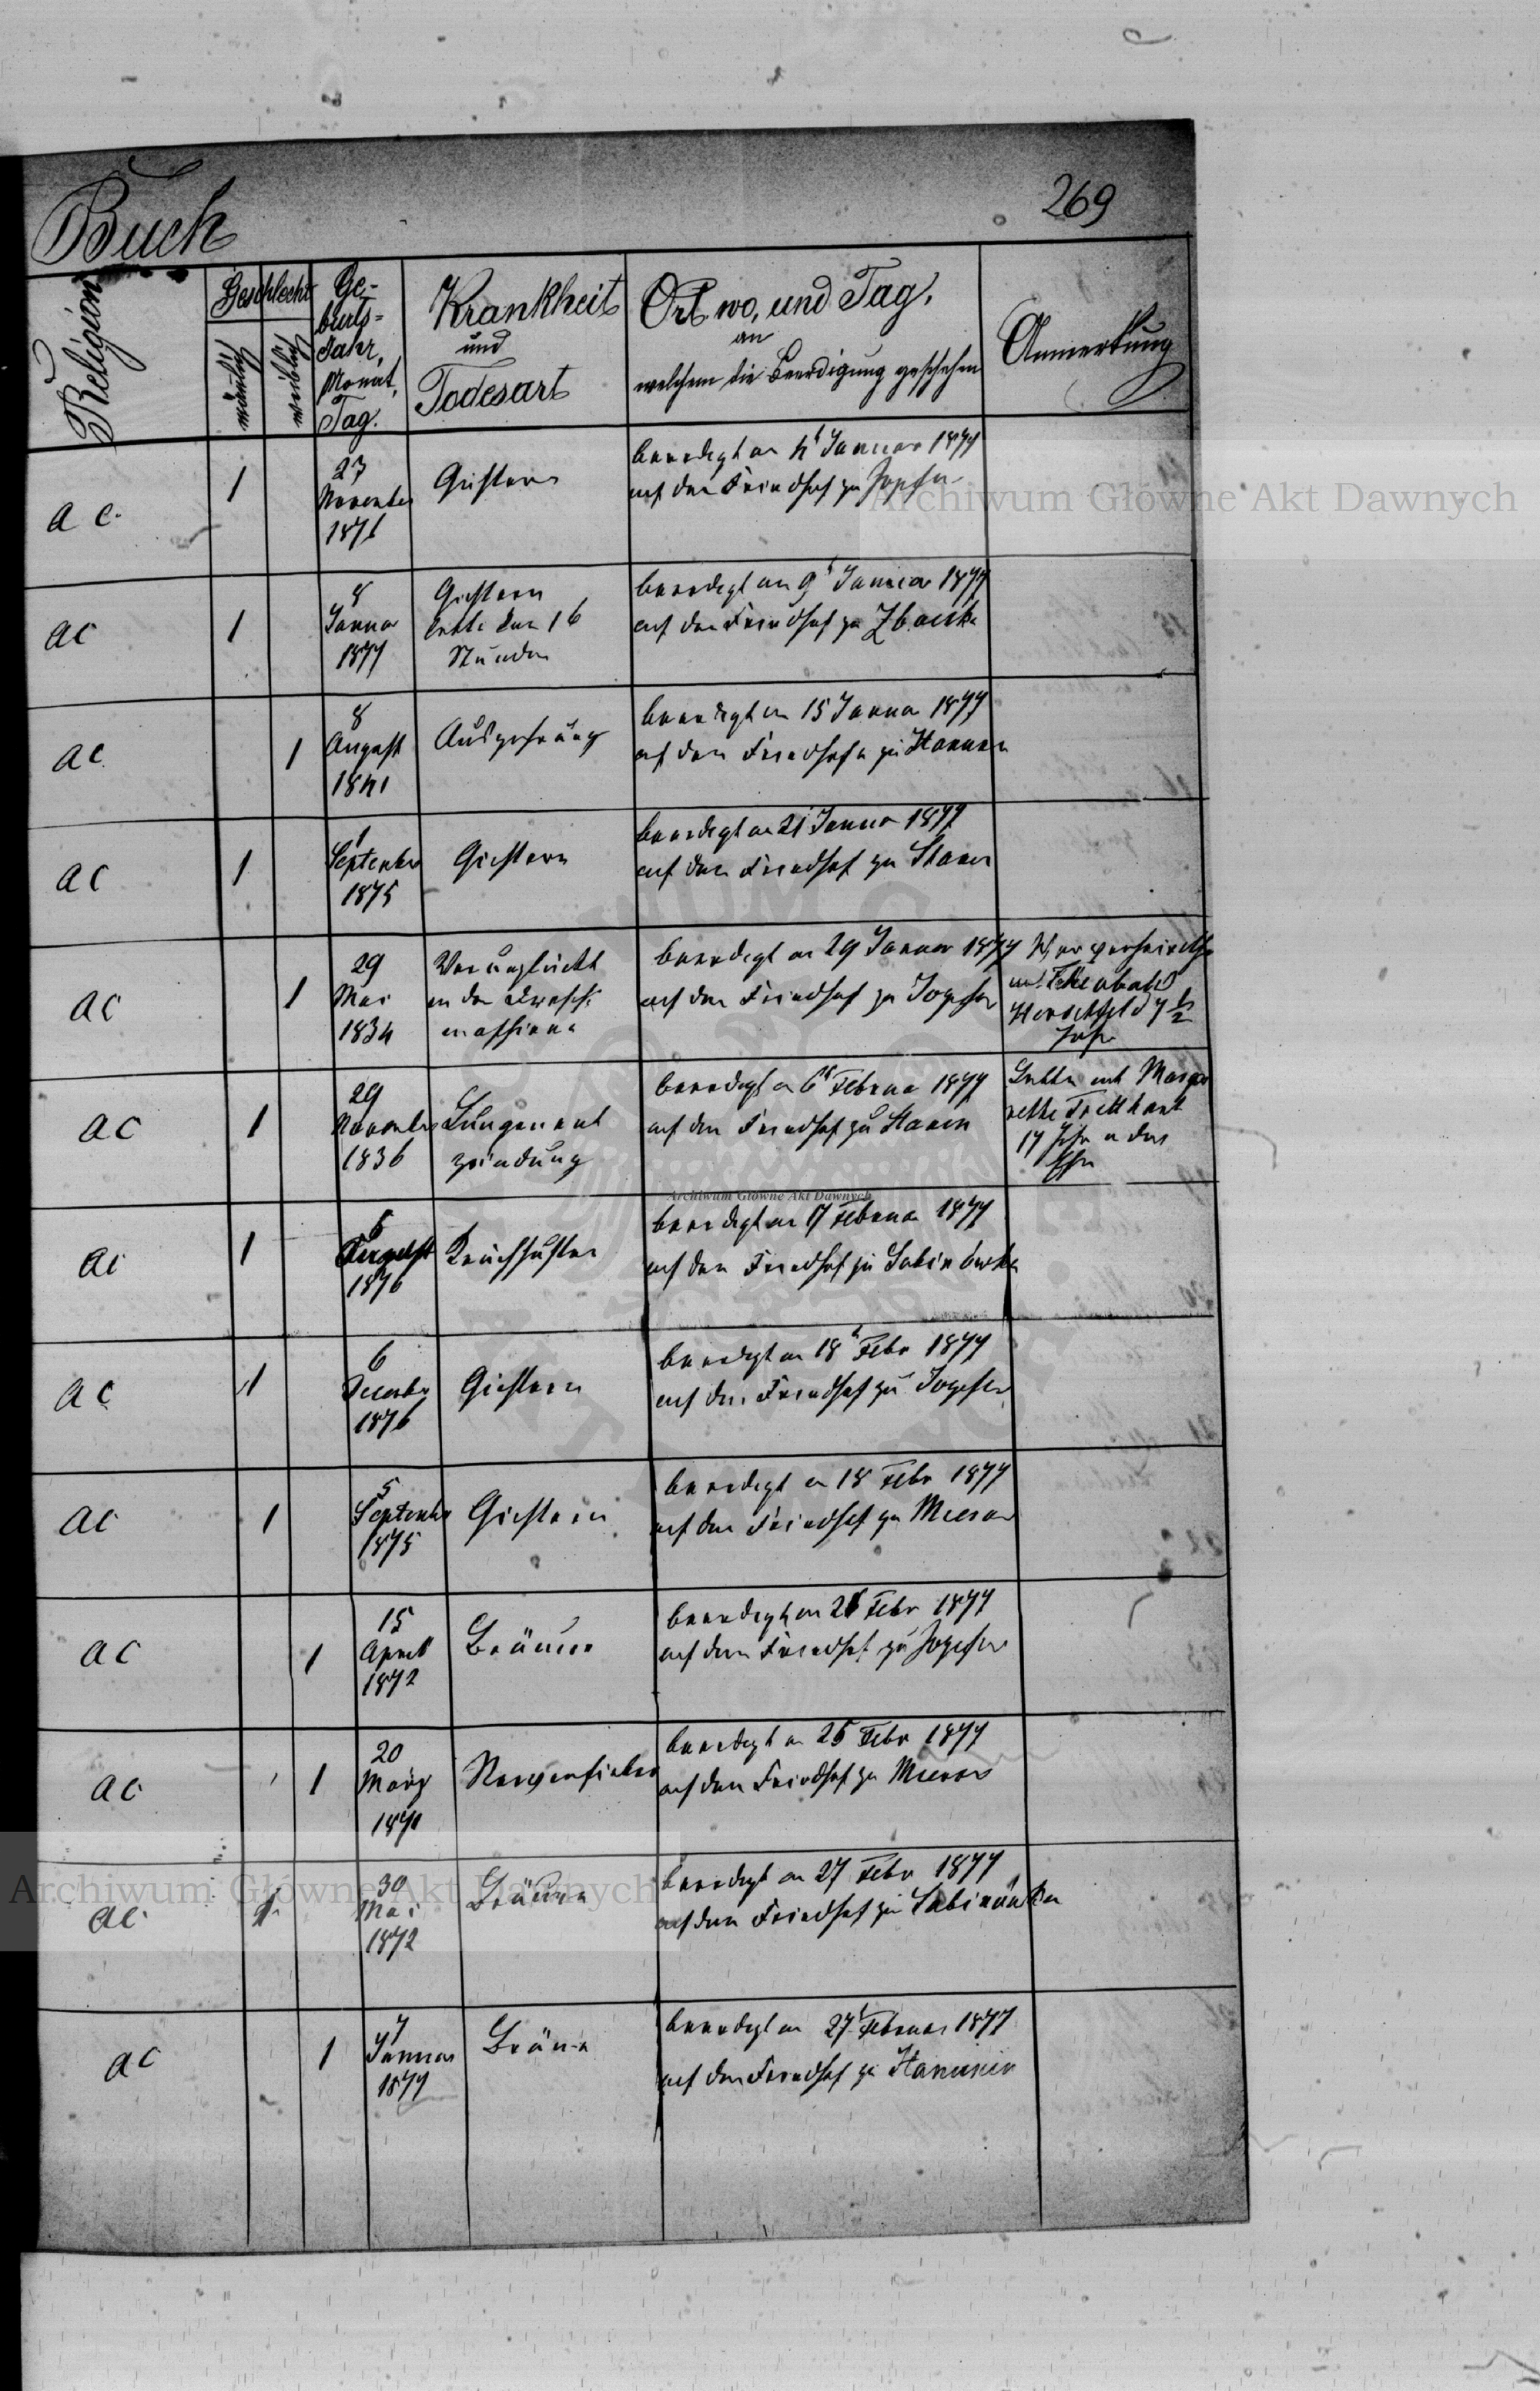 Buch
269
Religion
Geschlecht
männlich
weiblich
Ge-
burts-
Jahr,
Monat,
Tag.
Krankheit
und
Todesart
Ort wo, und Tag,
an
welchem die Beerdigung geschehen
Anmerkung
a c.
1
23
November
1876
Gichtern
beerdigt am 4t Januar 1877
auf dem Friedhof zu
ac
1
8
Januar
1877
Gichtern
lebte nur 16
Stunden
beerdigt am 9t Januar 1877
auf dem Friedhof zu
ac
1
8
August
1841
Auszehrung
beerdigt am 15 Januar 1877
auf dem Friedhofe zu Hanunin
ac
1
1
September
1875
Gichtern
beerdigt am 21 Januar 1877
auf dem Friedhof zu Stanin
ac
1
29
Mai
1834
Verunglückt
an der Dresch
maschine
beerdigt am 29 Januar 1877
auf dem Friedhof zu Jozefin
War verheirathet
mit Theobald
Herschfeld 7 1/2
Jahr
ac
1
29
November
1836
Lungenent
zündung
beerdigt am 6t Februar 1877
auf dem Friedhof zu Stanin
Lebte mit Marga
rethe
17 Jahr in der
Ehe
ac
1
6
August
1876
Keuchhusten
beerdigt am 17 Februar 1877
auf dem Friedhof zu Sabinówka
ac
1
6
December
1876
Gichtern
beerdigt am 18t Febr 1877
auf dem Friedhof zu Jozefin
ac
1
5
September
1875
Gichtern
beerdigt am 18 Febr 1877
auf dem Friedhof zu Mierow
ac
1
15
April
1872
Bräune
beerdigt am Febr 1877
auf dem Friedhof zu Jozefin
ac
1
20
März
Nervenfieber
beerdigt am 25 Febr 1877
auf dem Friedhof zu Mierow
ac
1
30
Mai
1872
Bräune
beerdigt am 27 Febr 1877
auf dem Friedhof zu Sabinówka
ac
1
7
Januar
1877
Bräune
beerdigt am 27t Februar 1877
auf dem Friedhof zu Hanunin
Archiwum Główne Akt Dawnych
Archiwum Główne Akt Dawnych
Archiwum Główne Akt Dawnych